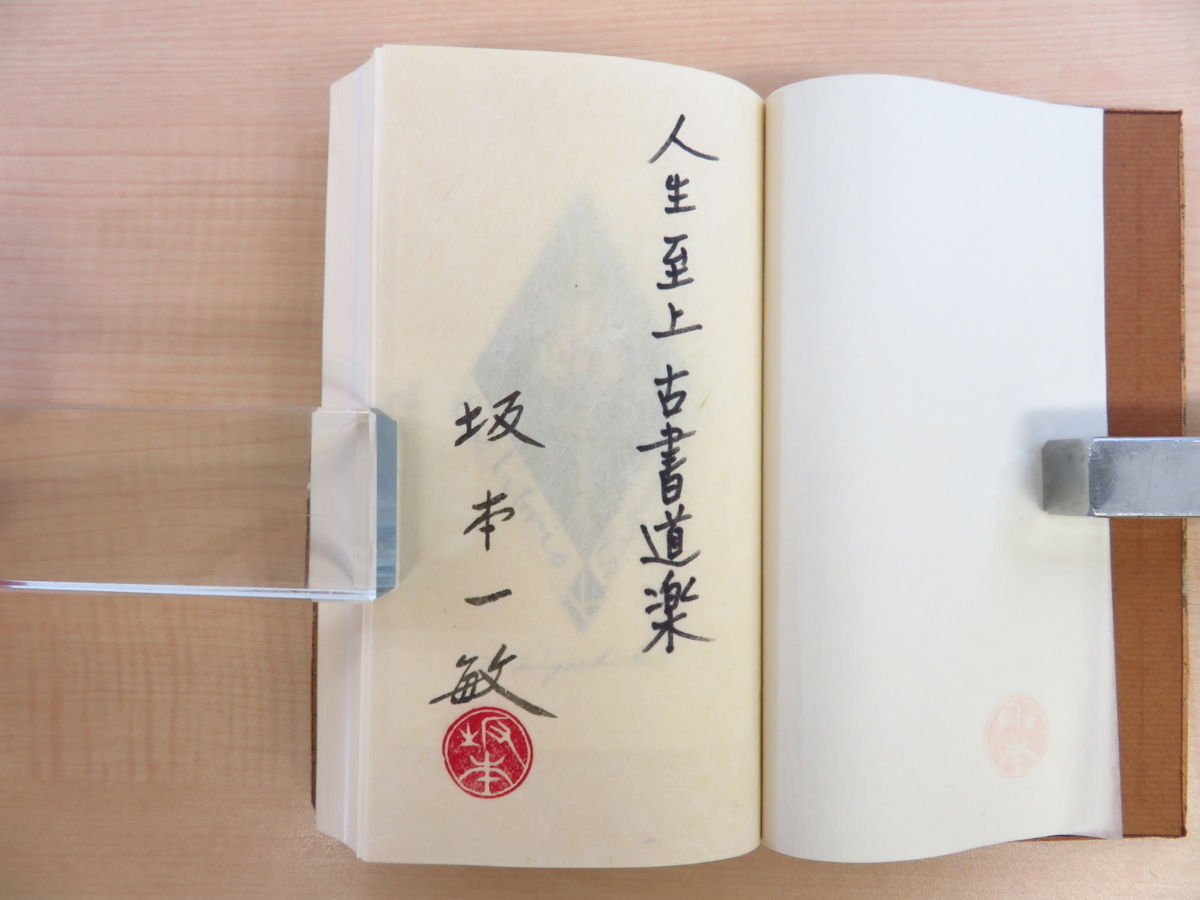 人生至上古書道楽
坂本一敏
坂本